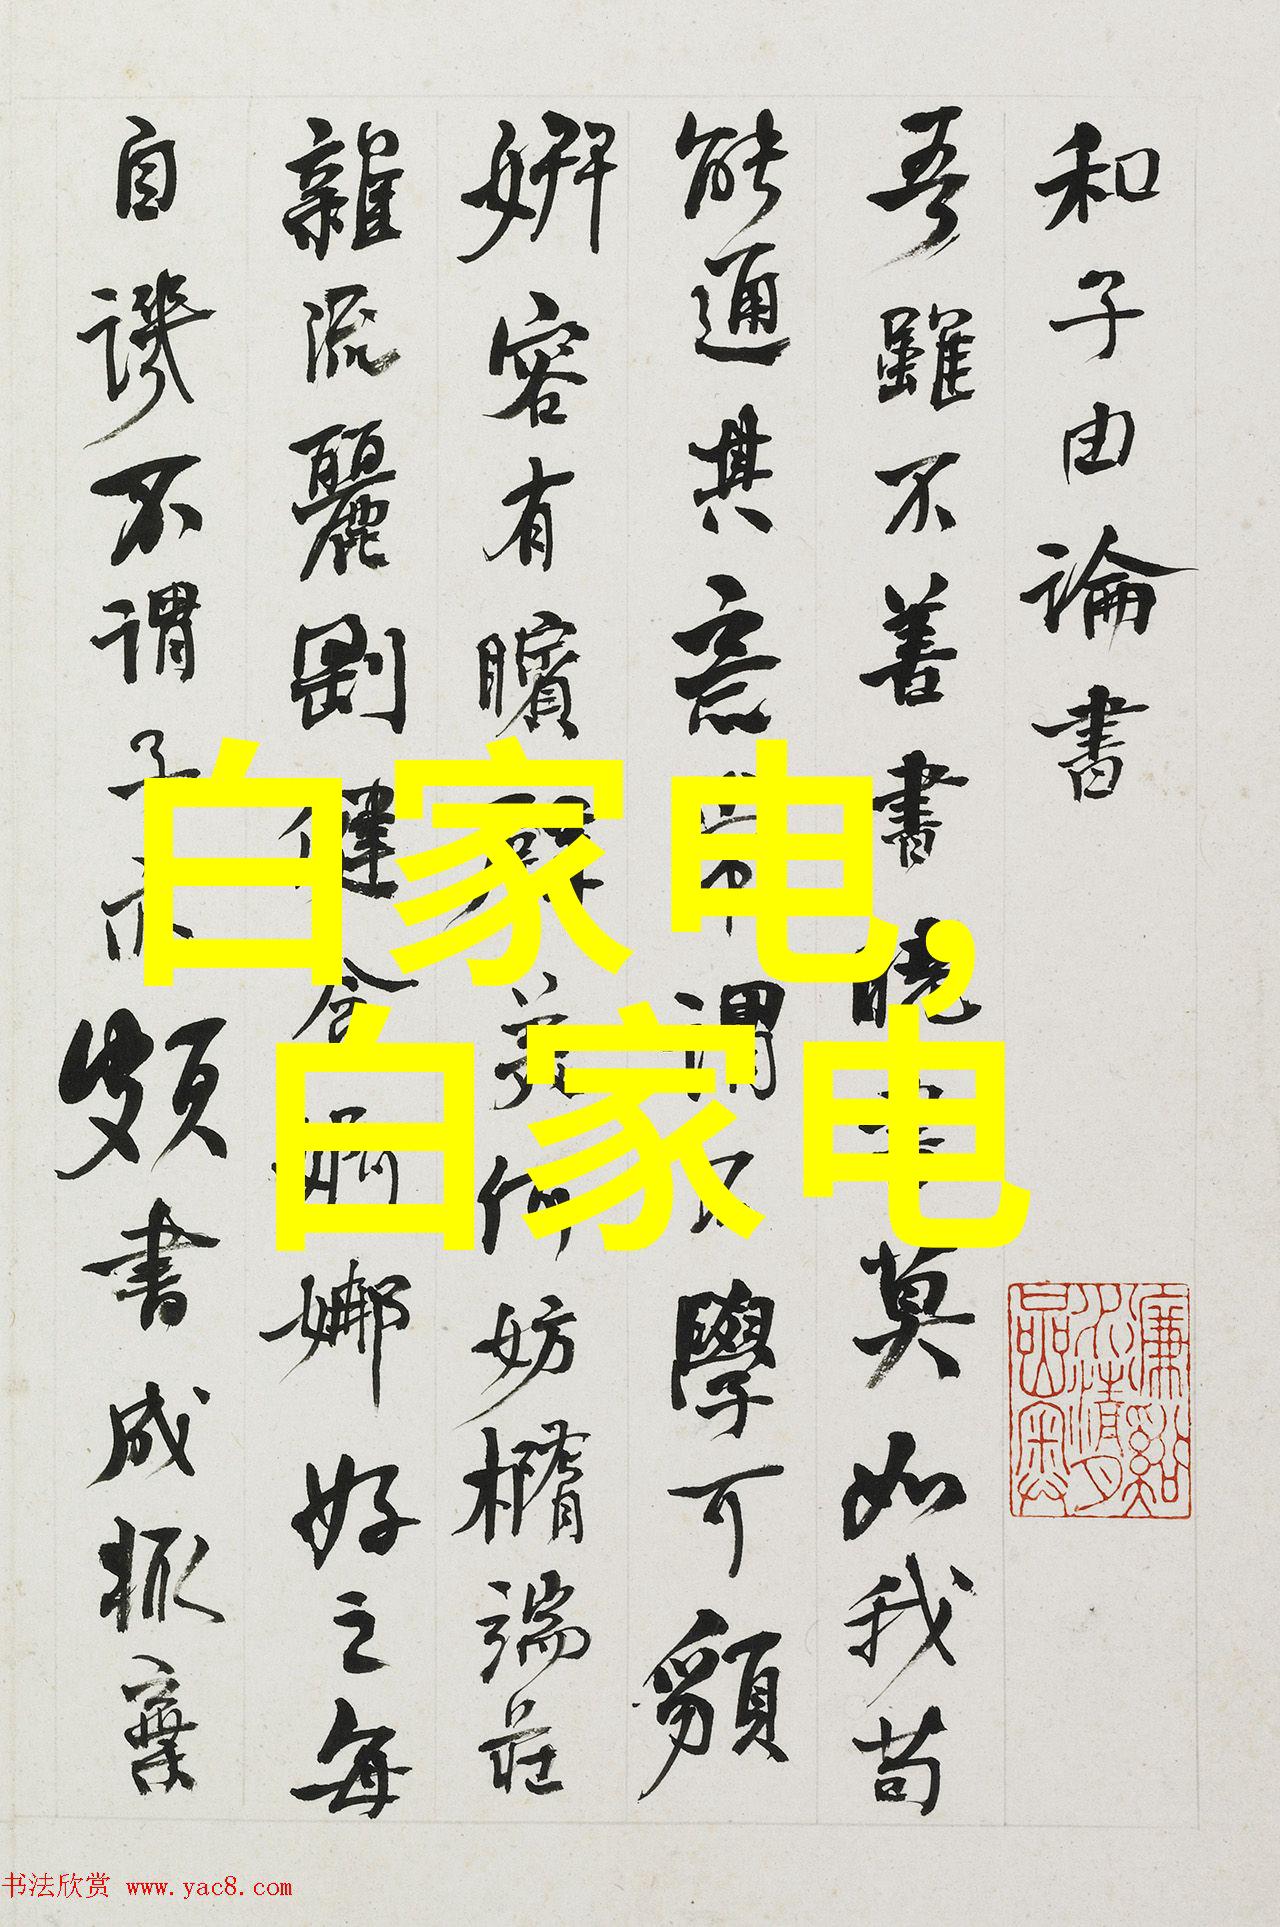 和子由論書
吾雖不善書曉書莫如我苟
能通其意常謂不學可䫉
妍容有矉璧美何妨橢端莊
雜流麗剛健含婀娜好之每
自譏不謂子亦頗書成輒棄
白家电,
白家电
书法欣赏 www.yac8.com